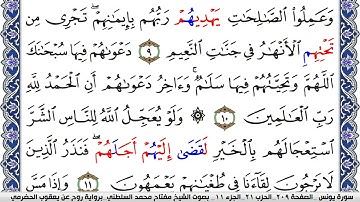 وَعَمِلُوا۟ ٱلصَّٰلِحَٰتِ يَهْدِيهُمْ رَبُّهُم بِإِيمَٰنِهِمْ ۖ تَجْرِى مِن
تَحْتِهِمُ ٱلْأَنْهَٰرُ فِى جَنَّٰتِ ٱلنَّعِيمِ ٩ دَعْوَىٰهُمْ فِيهَا سُبْحَٰنَكَ
ٱللَّهُمَّ وَتَحِيَّتُهُمْ فِيهَا سَلَٰمٌ ۚ وَءَاخِرُ دَعْوَىٰهُمْ أَنِ ٱلْحَمْدُ لِلَّهِ
رَبِّ ٱلْعَٰلَمِينَ ١٠ ۞ وَلَوْ يُعَجِّلُ ٱللَّهُ لِلنَّاسِ ٱلشَّرَّ
ٱسْتِعْجَالَهُم بِٱلْخَيْرِ لَقَضَىٰ إِلَيْهُمْ أَجَلَهُمْ ۖ فَنَذَرُ ٱلَّذِينَ
لَا يَرْجُونَ لِقَآءَنَا فِى طُغْيَٰنِهِمْ يَعْمَهُونَ ١١ وَإِذَا مَسَّ
سورة يونس . الصفحة ٢٠٩ . الحزب ٢١ . الجزء ١١ . بصوت الشيخ مفتاح محمد السلطني . برواية روح عن يعقوب الحضرمي